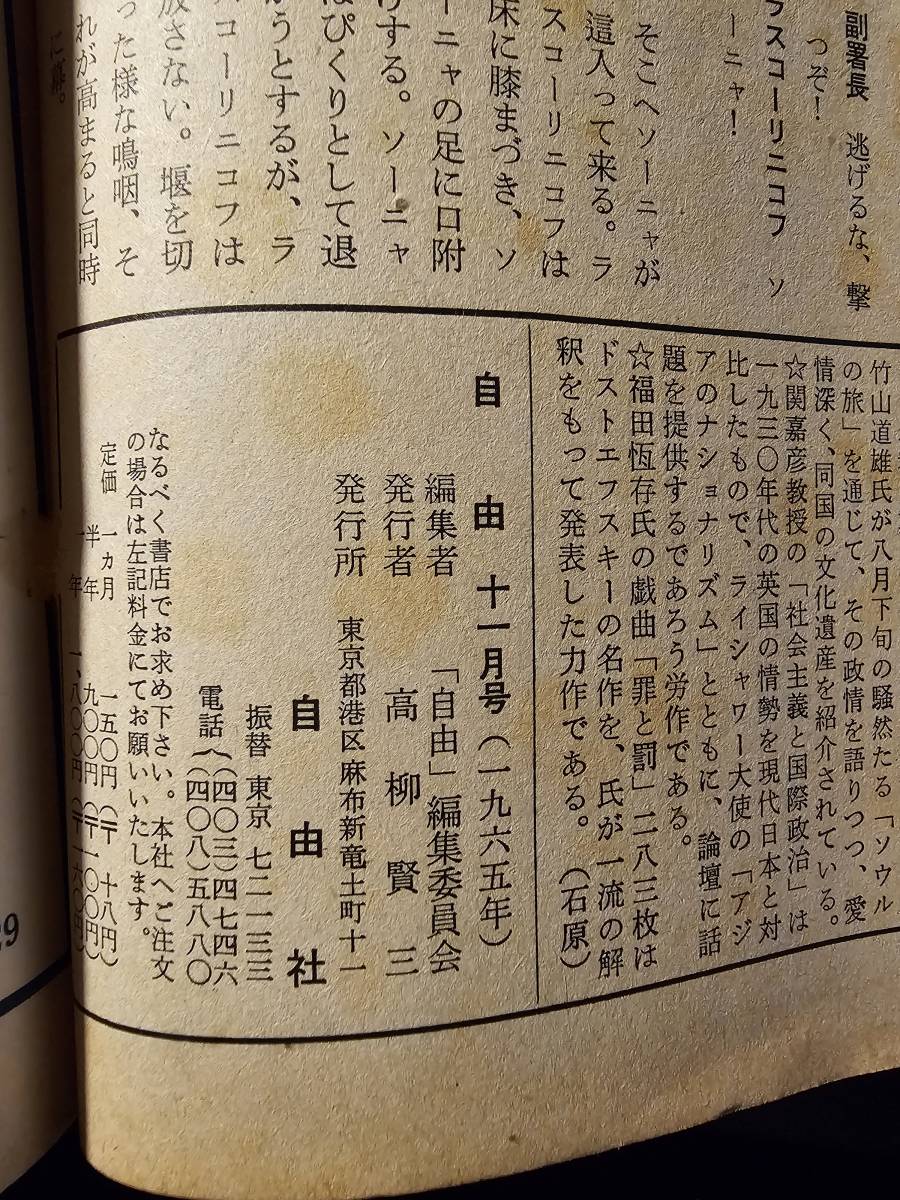 副署長　逃げるな、撃
つぞ！
ラスコーリニコフ　ソ
ーニャ！
そこへソーニャが
這入って来る。ラ
スコーリニコフは
床に膝まづき、ソ
ーニャの足に口附
けする。ソーニャ
はぴくりとして退
かうとするが、ラ
スコーリニコフは
放さない。堰を切
った様な嗚咽、そ
れが高まると同時
に幕。
竹山道雄氏が八月下旬の騒然たる「ソウル
の旅」を通じて、その政情を語りつつ、愛
情深く、同国の文化遺産を紹介されている。
☆関嘉彦教授の「社会主義と国際政治」は
一九三〇年代の英国の情勢を現代日本と対
比したもので、ライシャワー大使の「アジ
アのナショナリズム」とともに、論壇に話
題を提供するであろう労作である。
☆福田恆存氏の戯曲「罪と罰」二八三枚は
ドストエフスキーの名作を、氏が一流の解
釈をもって発表した力作である。　（石原）
自由　十一月号（一九六五年）
編集者　「自由」編集委員会
発行者　高柳賢三
発行所　東京都港区麻布新竜土町十一
自由社
振替　東京　七二一三三
電話（四〇三）四七四六
（四〇八）五八八〇
なるべく書店でお求め下さい。本社へご注文
の場合は左記料金にてお願いいたします。
定価　一ヵ月　一五〇円（〒十八円）
半年　九〇〇円（〒一〇〇円）
一年　一、八〇〇円（〒一六〇円）
29